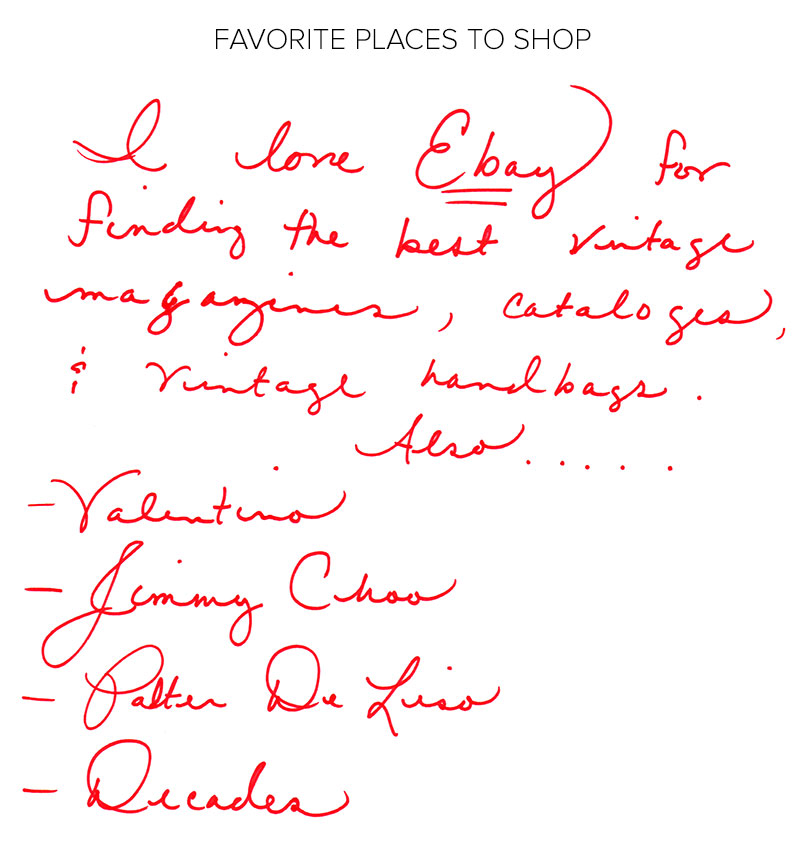 FAVORITE PLACES TO SHOP
I love Ebay for
finding the best vintage
magazines, cataloges,
& vintage handbags.
Also.....
- Valentino
- Jimmy Choo
- Palter De Liso
- Decades